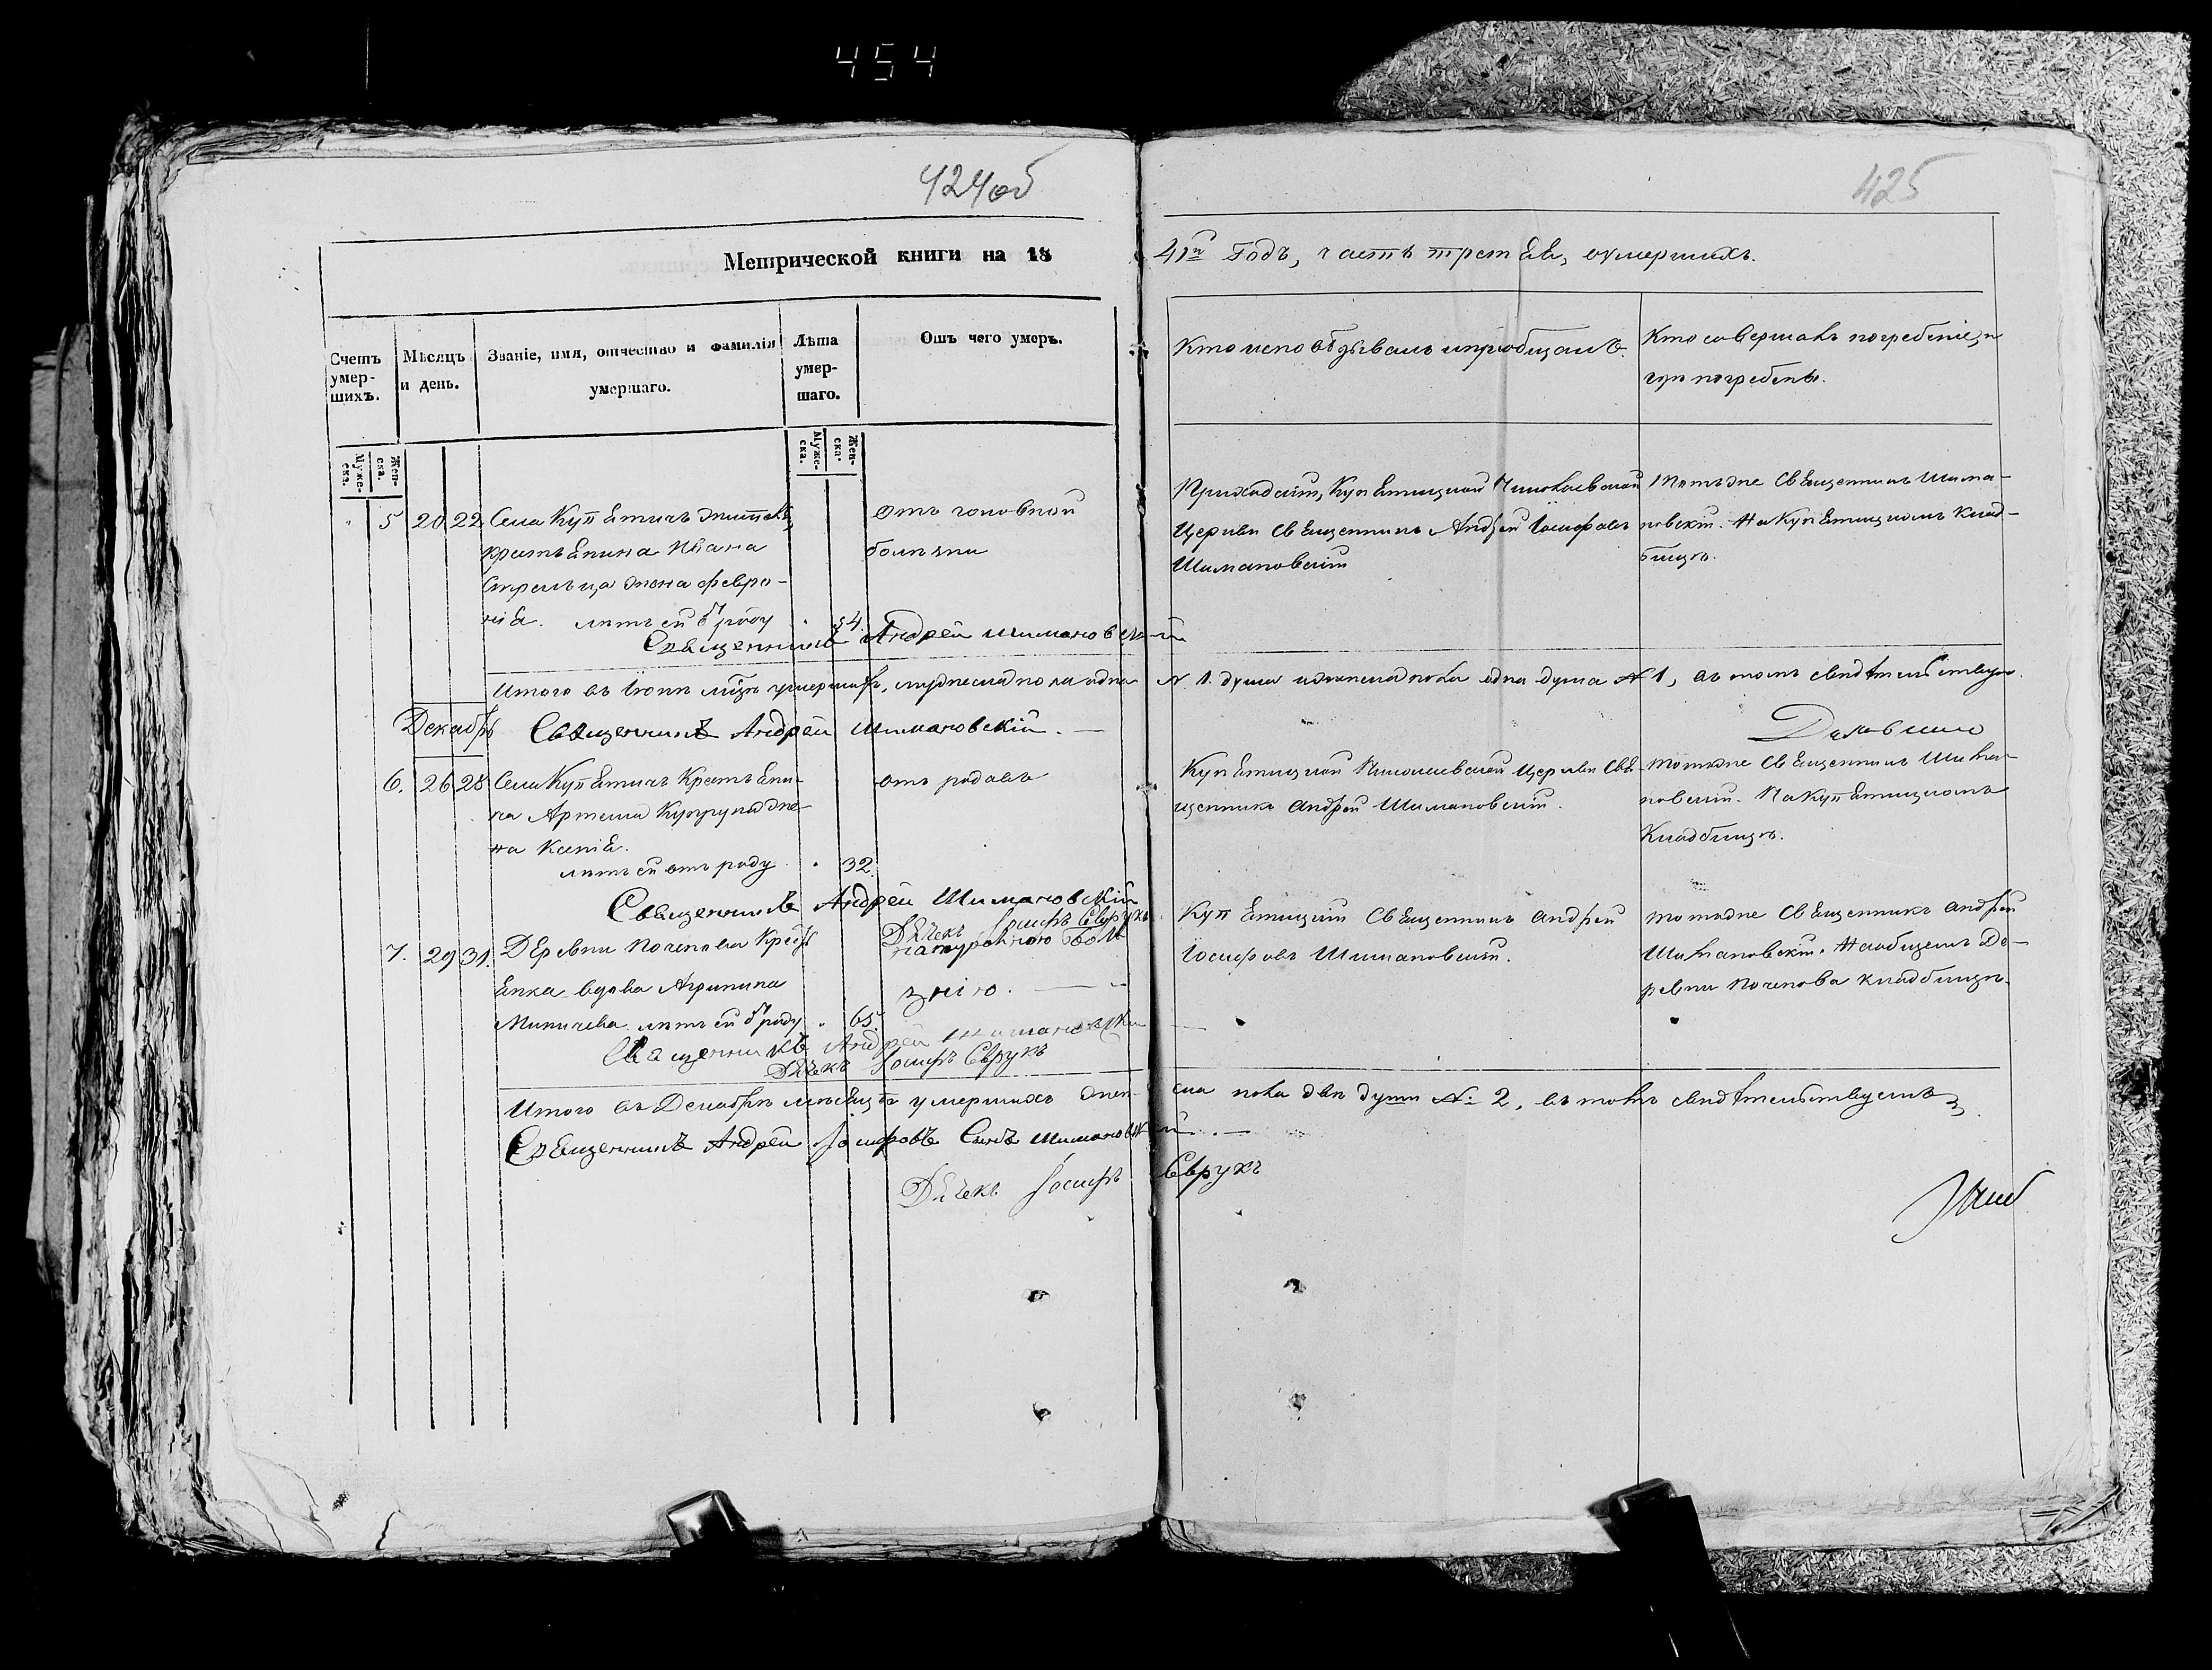 454
424об
425
Метрической книги на 18
41й Годъ, часть третья, оумершихъ.
Счетъ умер-шихъ.
Мѣсяцъ и день.
Званіе, имя, отчество и фамилія умершаго.
Лѣта умер-шаго.
Отъ чего умеръ.
Кто исповѣдывалъ и пріобщалъ.
Кто совершалъ погребеніе, и
гдѣ погребены.
Муже-ска.
Жен-ска.
Муже-ска.
Жен-ска.
5 20 22 Села Купятичъ жителя
крестьянина Ивана
Стрельца жена Февро-
нія. лѣтъ ей ѿ роду 54.
отъ головной
болѣзни
Приходскій, Купятицкой Николаевской
Церкви Священникъ Андрей Іосифовъ
Шимановскій
Тотъ же Священникъ Шима-
новскій. На Купятицкомъ Клад-
бищѣ.
Священникъ Андрей Шимановскій
Итого въ Іюнѣ мѣсяцѣ умершихъ, мужеска пола одна
N. 1. душа и женска пола одна душа N 1, въ томъ свидѣтельствую.
Декабрь
Священникъ Андрей Шимановскій.
6. 26 28 Села Купятичъ Крестьяни-
на Артема Кукурузы же-
на Ксенія.
лѣтъ ей отъ роду 32.
отъ родовъ
Купятицкой Николаевской Церкви Свя-
щенникъ Андрей Шимановскій.
тотъ же Священникъ Шима-
новскій. На Купятицкомъ
Кладбищѣ.
Священникъ Андрей Шимановскій
Дьячекъ Іосифъ Сврукъ
7. 29 31. Деревни Почепова Крестья
янка вдова Агрипина
Миничева лѣтъ ей ѿ роду 65.
натуральною болѣ
знію.
Купятицкій Священникъ Андрей
Іосифовъ Шимановскій.
тотъ же Священникъ Андрей
Шимановскій. На общемъ Де-
ревни Почепова кладбищѣ.
Священникъ Андрей Шимановскій
Дьячекъ Іосифъ Сврукъ
Итого въ Декабрѣ мѣсяцѣ умершихъ жен-
ска пола двѣ души №: 2, въ томъ свидѣтельствуемъ
Священникъ Андрей Іосифовъ Сынъ Шимановскій.
Дьячекъ Іосифъ Сврукъ